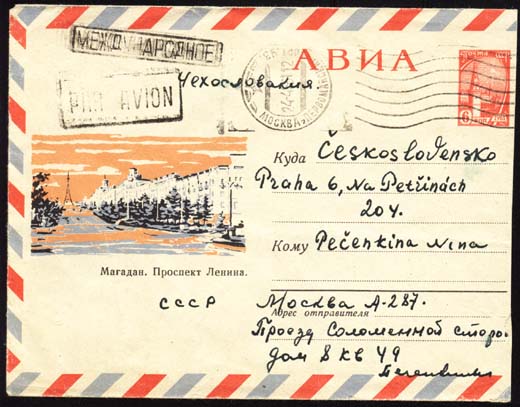 МЕЖДУНАРОДНОЕ
АВИА
Чехословакия.
PAR AVION
МОСКВА
Куда Československo
Praha 6, Na Petřinách
204.
Кому Pečenkina Nina
Магадан. Проспект Ленина.
СССР
Москва А-287.
Адрес отправителя
Проезд Соломенной сторо.
дом 8 кв 49